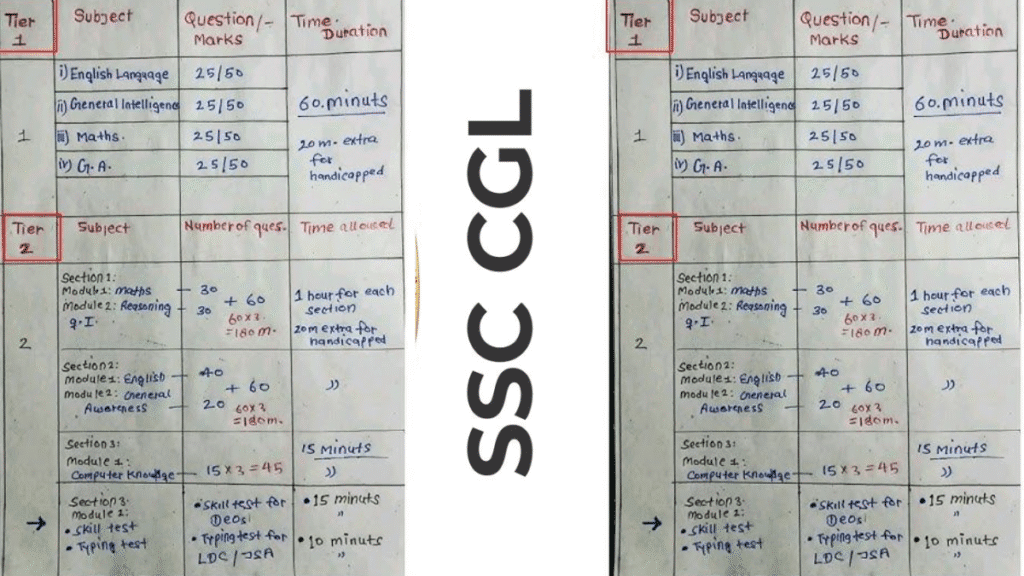 Tier 1 Subject Question/- Marks Time. Duration
1
i) English Language 25/50
ii) General Intelligenc 25/50
iii) Maths. 25/50
iv) G.A. 25/50
60.minuts
20 m. extra
for
handicapped
Tier 2 Subject Number of ques. Time alloused
2
Section 1:
Module1: maths — 30
Module 2: Reasoning — 30
g.I.
+ 60
60x3
=180 m.
1 hour for each
section
20m extra for
handicapped
Section2:
Module1: English — 40
module2: General
Awareness — 20
+ 60
60x3
=180m.
))
Section 3:
Module 1:
Computer Knowledge — 15 x 3 = 45
15 minuts
))
→
Section3
Module 2:
• Skill test
• Typing test
• Skill test for
DEOs:
• Typing test for
LDC / JSA
• 15 minuts
"
• 10 minuts
"
SSC CGL
Tier 1 Subject Question/- Marks Time. Duration
1
i) English Language 25/50
ii) General Intelligenc 25/50
iii) Maths. 25/50
iv) G.A. 25/50
60.minuts
20 m. extra
for
handicapped
Tier 2 Subject Number of ques. Time alloused
2
Section 1:
Module1: maths — 30
Module 2: Reasoning — 30
g.I.
+ 60
60x3
=180 m.
1 hour for each
section
20m extra for
handicapped
Section2:
Module1: English — 40
module2: General
Awareness — 20
+ 60
60x3
=180m.
))
Section 3:
Module 1:
Computer Knowledge — 15 x 3 = 45
15 minuts
))
→
Section3
Module 2:
• Skill test
• Typing test
• Skill test for
DEOs:
• Typing test for
LDC / JSA
• 15 minuts
"
• 10 minuts
"